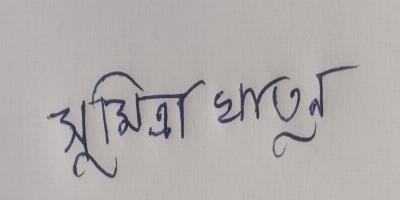 সুমিত্রা খাতুন